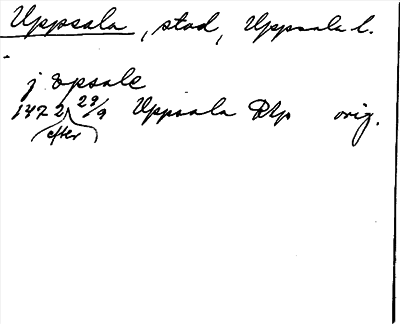 Uppsala, stad, Uppsala l.
j opsale
1472 29/9 Uppsala Rtp orig.
efter